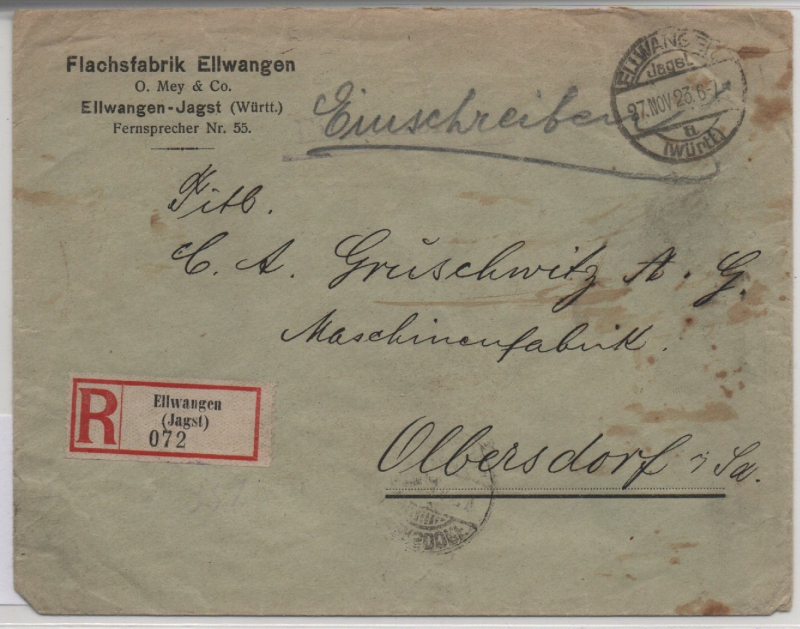 Flachsfabrik Ellwangen
O. Mey & Co.
Ellwangen-Jagst (Württ.)
Fernsprecher Nr. 55.
Einschreiben
ELLWANGEN
Jagst
27.NOV.23. 6-7
a
(Württ)
Titb.
C. A. Gruschwitz A. G.
Maschinenfabrik.
R
Ellwangen
(Jagst)
072
Olbersdorf i/Sa.